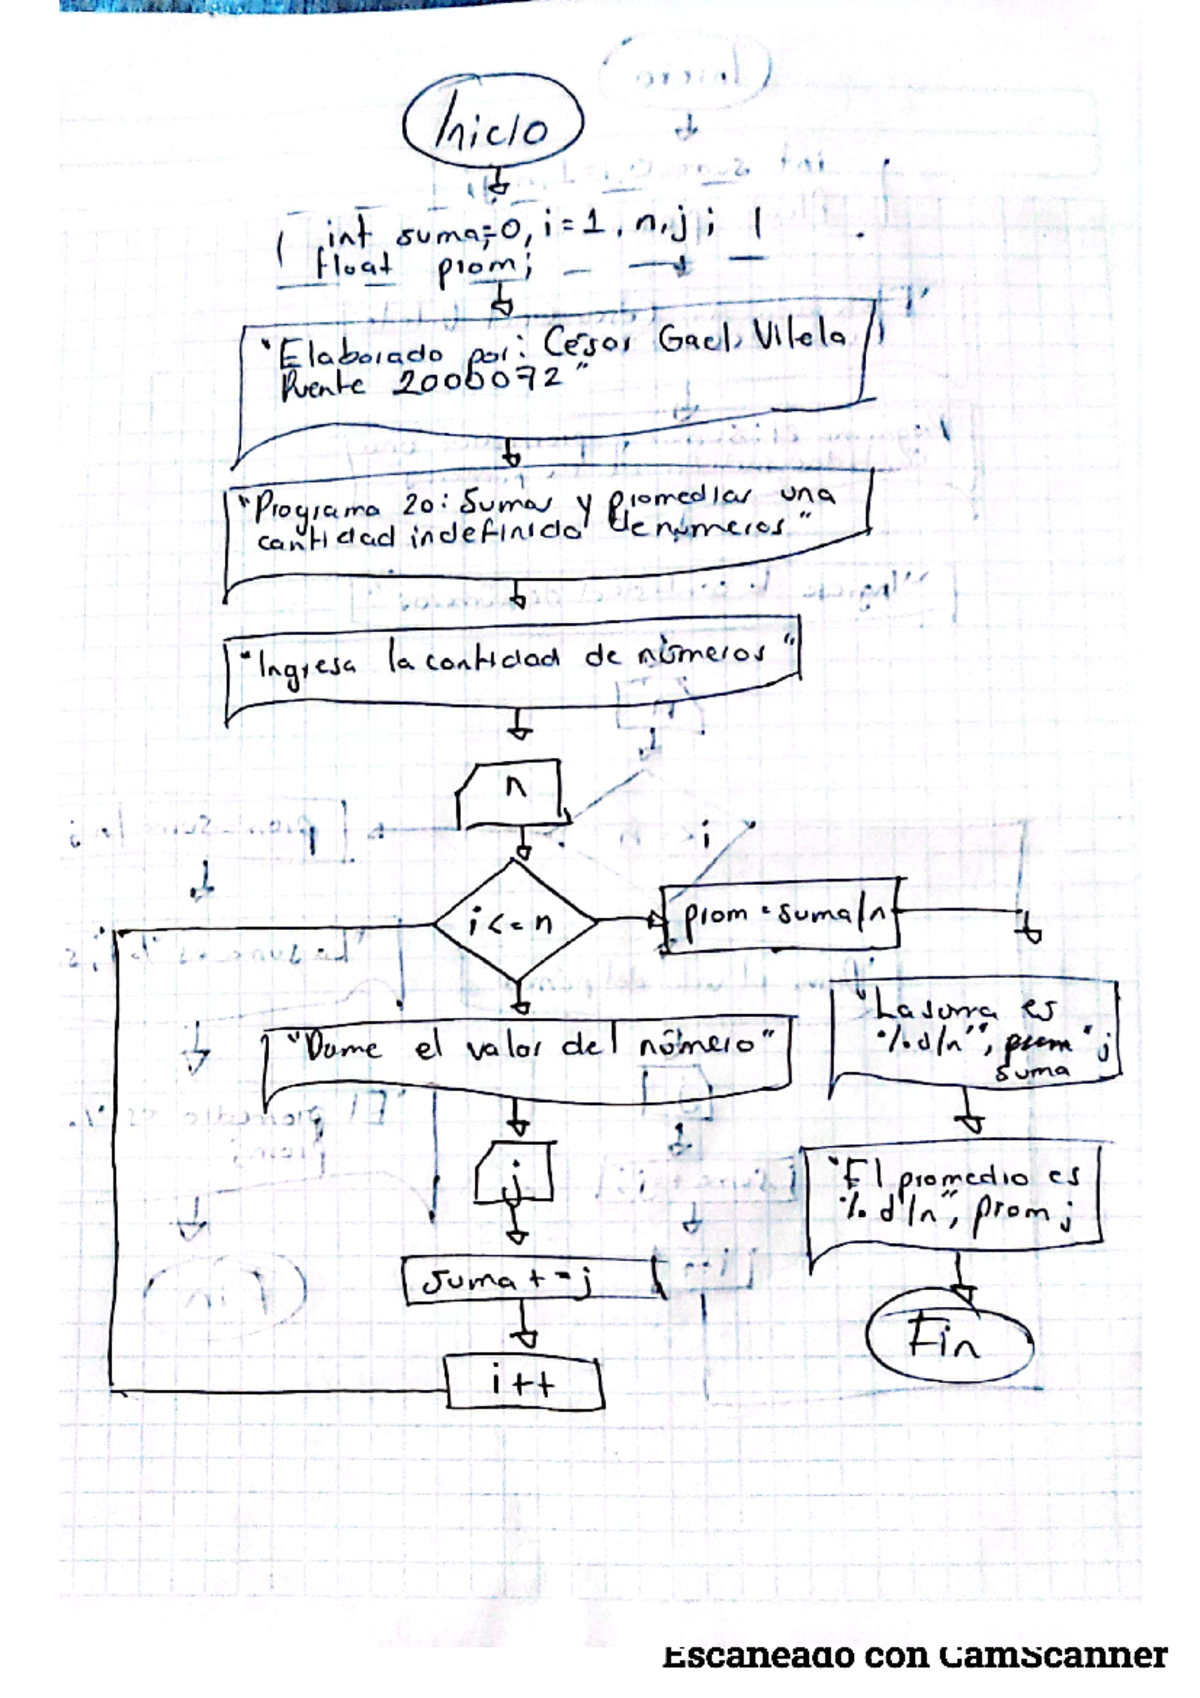 Inicio
int suma=0, i=1, n, j;
float prom;
"Elaborado por: César Gael Vilela
Puente 2000072"
"Programa 20: Sumar y promediar una
cantidad indefinida de números"
"Ingresa la cantidad de números"
n
i<=n
prom=suma/n
"Dame el valor del número"
j
suma+=j
i++
"La suma es
%d/n",
suma
;
"El promedio es
%d/n", prom;
Fin
Escaneado con CamScanner